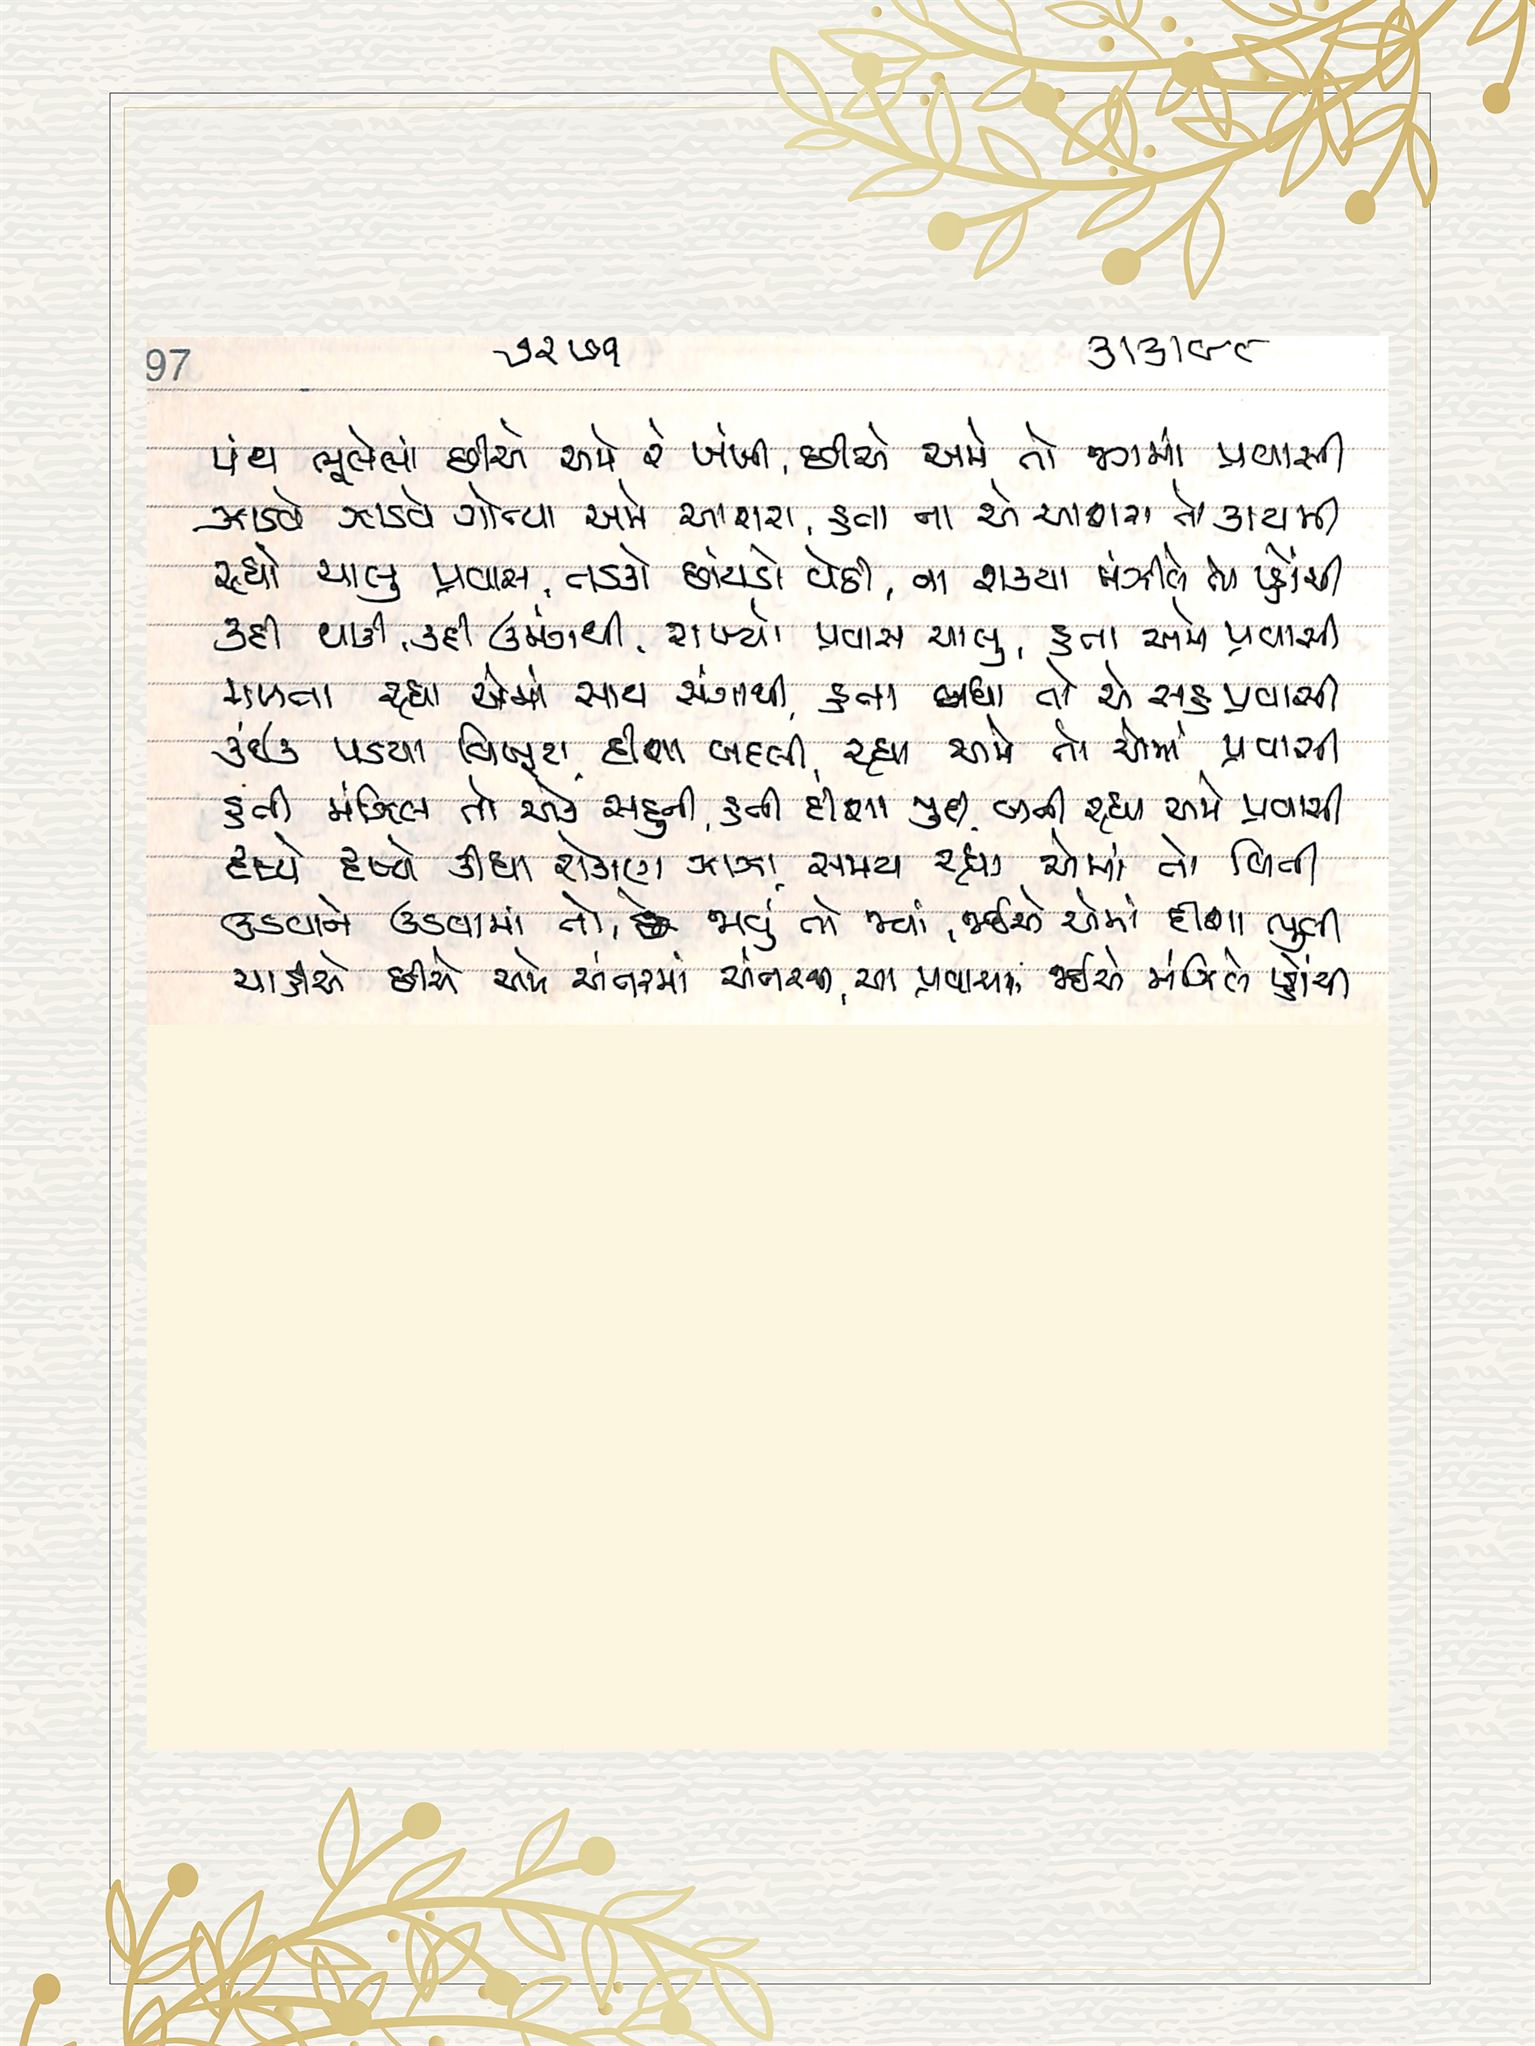 97 ૭૨૭૧ ૩/૩/૯૮
પંથ ભૂલેલાં છીએ અમે રે પંખી, છીએ અમે તો જગમાં પ્રવાસી
ઝાડવે ઝાડવે ગોત્યા અમે આશરા, હતા ના એ આશરા તો કાયમી
રહ્યો ચાલુ પ્રવાસ, તડકો છાંયડો વેઠી, ના શક્યા મંઝીલે તો પ્હોંચી
કદી થાકી, કદી ઉમંગથી, રાખ્યો પ્રવાસ ચાલુ, હતા અમે પ્રવાસી
મળતા રહ્યા એમાં સાથ સંગાથી, હતા બધા તો એ સહુ પ્રવાસી
કંઈક પડયા વિખૂટા, દીશા બદલી, રહ્યા અમે તો એમાં પ્રવાસી
હતી મંજિલ તો એક સહુની, હતી દીશા જુદી, બની રહ્યા અમે પ્રવાસી
દૃશ્યે દૃશ્યે કીધા રોકાણ ઝાઝા, સમય રહ્યા એમાં તો વિતી
ઉડવાને ઉડવામાં તો, જાવું તો ક્યાં, જઈએ એમાં દીશા ભુલી
ચાહીએ છીએ અમે અંતરમાં અંતરથી, આ પ્રવાસમાં જઈએ મંજિલે પ્હોંચી